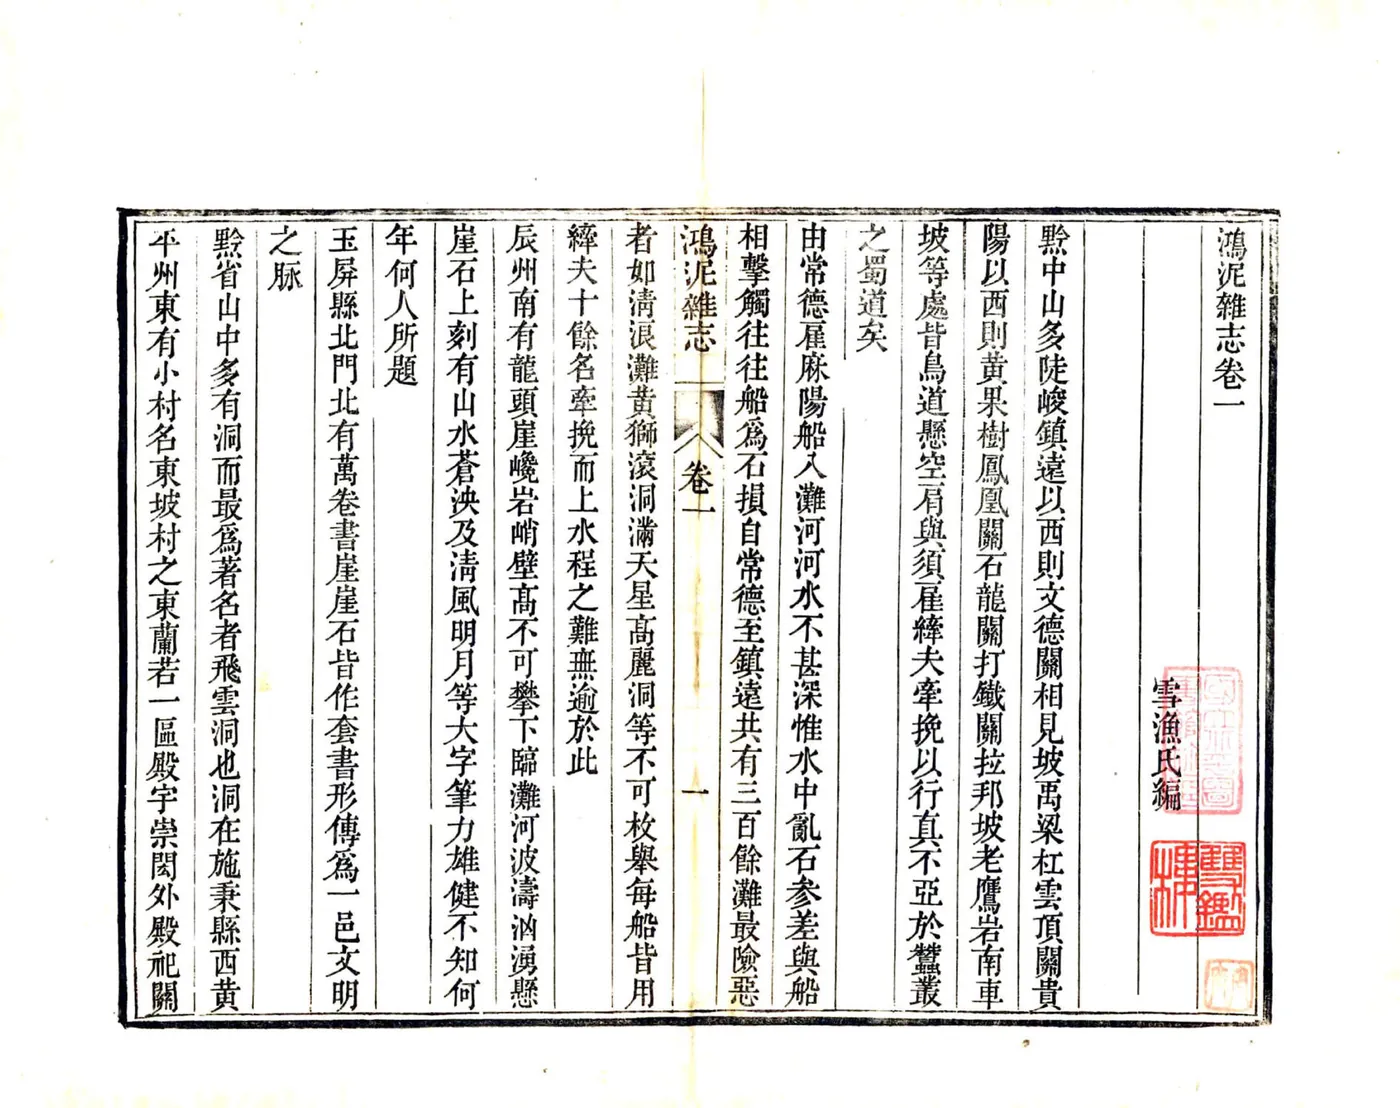 鴻泥雜志卷一
雪漁氏編
黔中山多陡峻鎮遠以西則文德關相見坡禹梁杠雲頂關貴
陽以西則黃果樹鳳凰關石龍關打鐵關拉邦坡老鷹岩南車
坡等處皆鳥道懸空肩與須雇縴夫牽挽以行真不亞於蠶叢
之蜀道矣
由常德雇麻陽船入灘河河水不甚深惟水中亂石參差與船
相擊觸往往船爲石損自常德至鎮遠共有三百餘灘最險惡
鴻泥雜志
卷一
一
者如淸浪灘黃獅滾洞滿天星高麗洞等不可枚舉每船皆用
縴夫十餘名牽挽而上水程之難無逾於此
辰州南有龍頭崖巉岩峭壁高不可攀下臨灘河波濤洶湧懸
崖石上刻有山水蒼泱及淸風明月等大字筆力雄健不知何
年何人所題
玉屏縣北門北有萬卷書崖崖石皆作套書形傳爲一邑文明
之脉
黔省山中多有洞而最爲著名者飛雲洞也洞在施秉縣西黃
平州東有小村名東坡村之東蘭若一區殿宇崇閎外殿祀關
雙鑑樓